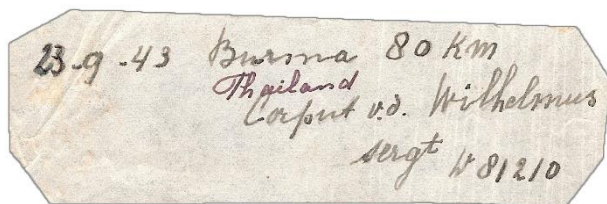 23-9-43 Burma 80 Km
Thailand
Corput v.d. Wilhelmus
sergt W 81210